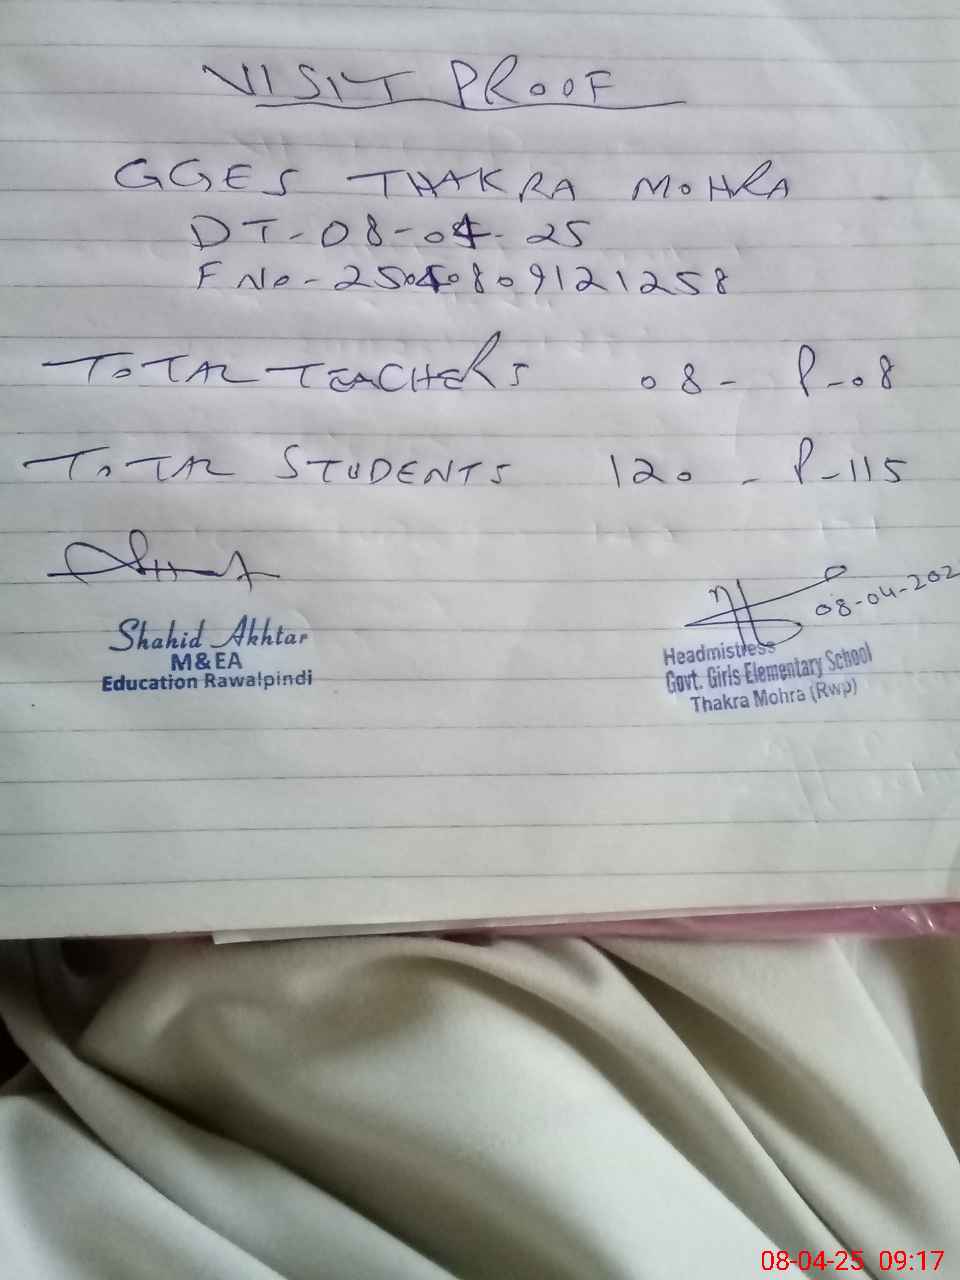 VISIT PROOF
GGES THAKRA MOHRA
DT-08-04-25
F No-25040809121258
TOTAL TEACHERS 08- P-08
TOTAL STUDENTS 120 - P-115
08-04-202
Shahid Akhtar
M&EA
Education Rawalpindi
Headmistress
Govt. Girls Elementary School
Thakra Mohra (Rwp)
08-04-25 09:17